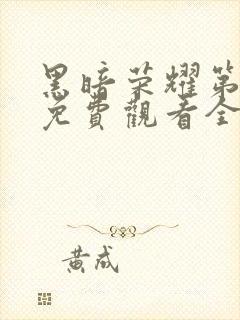 黑暗荣耀第
免費觀看全
黄成